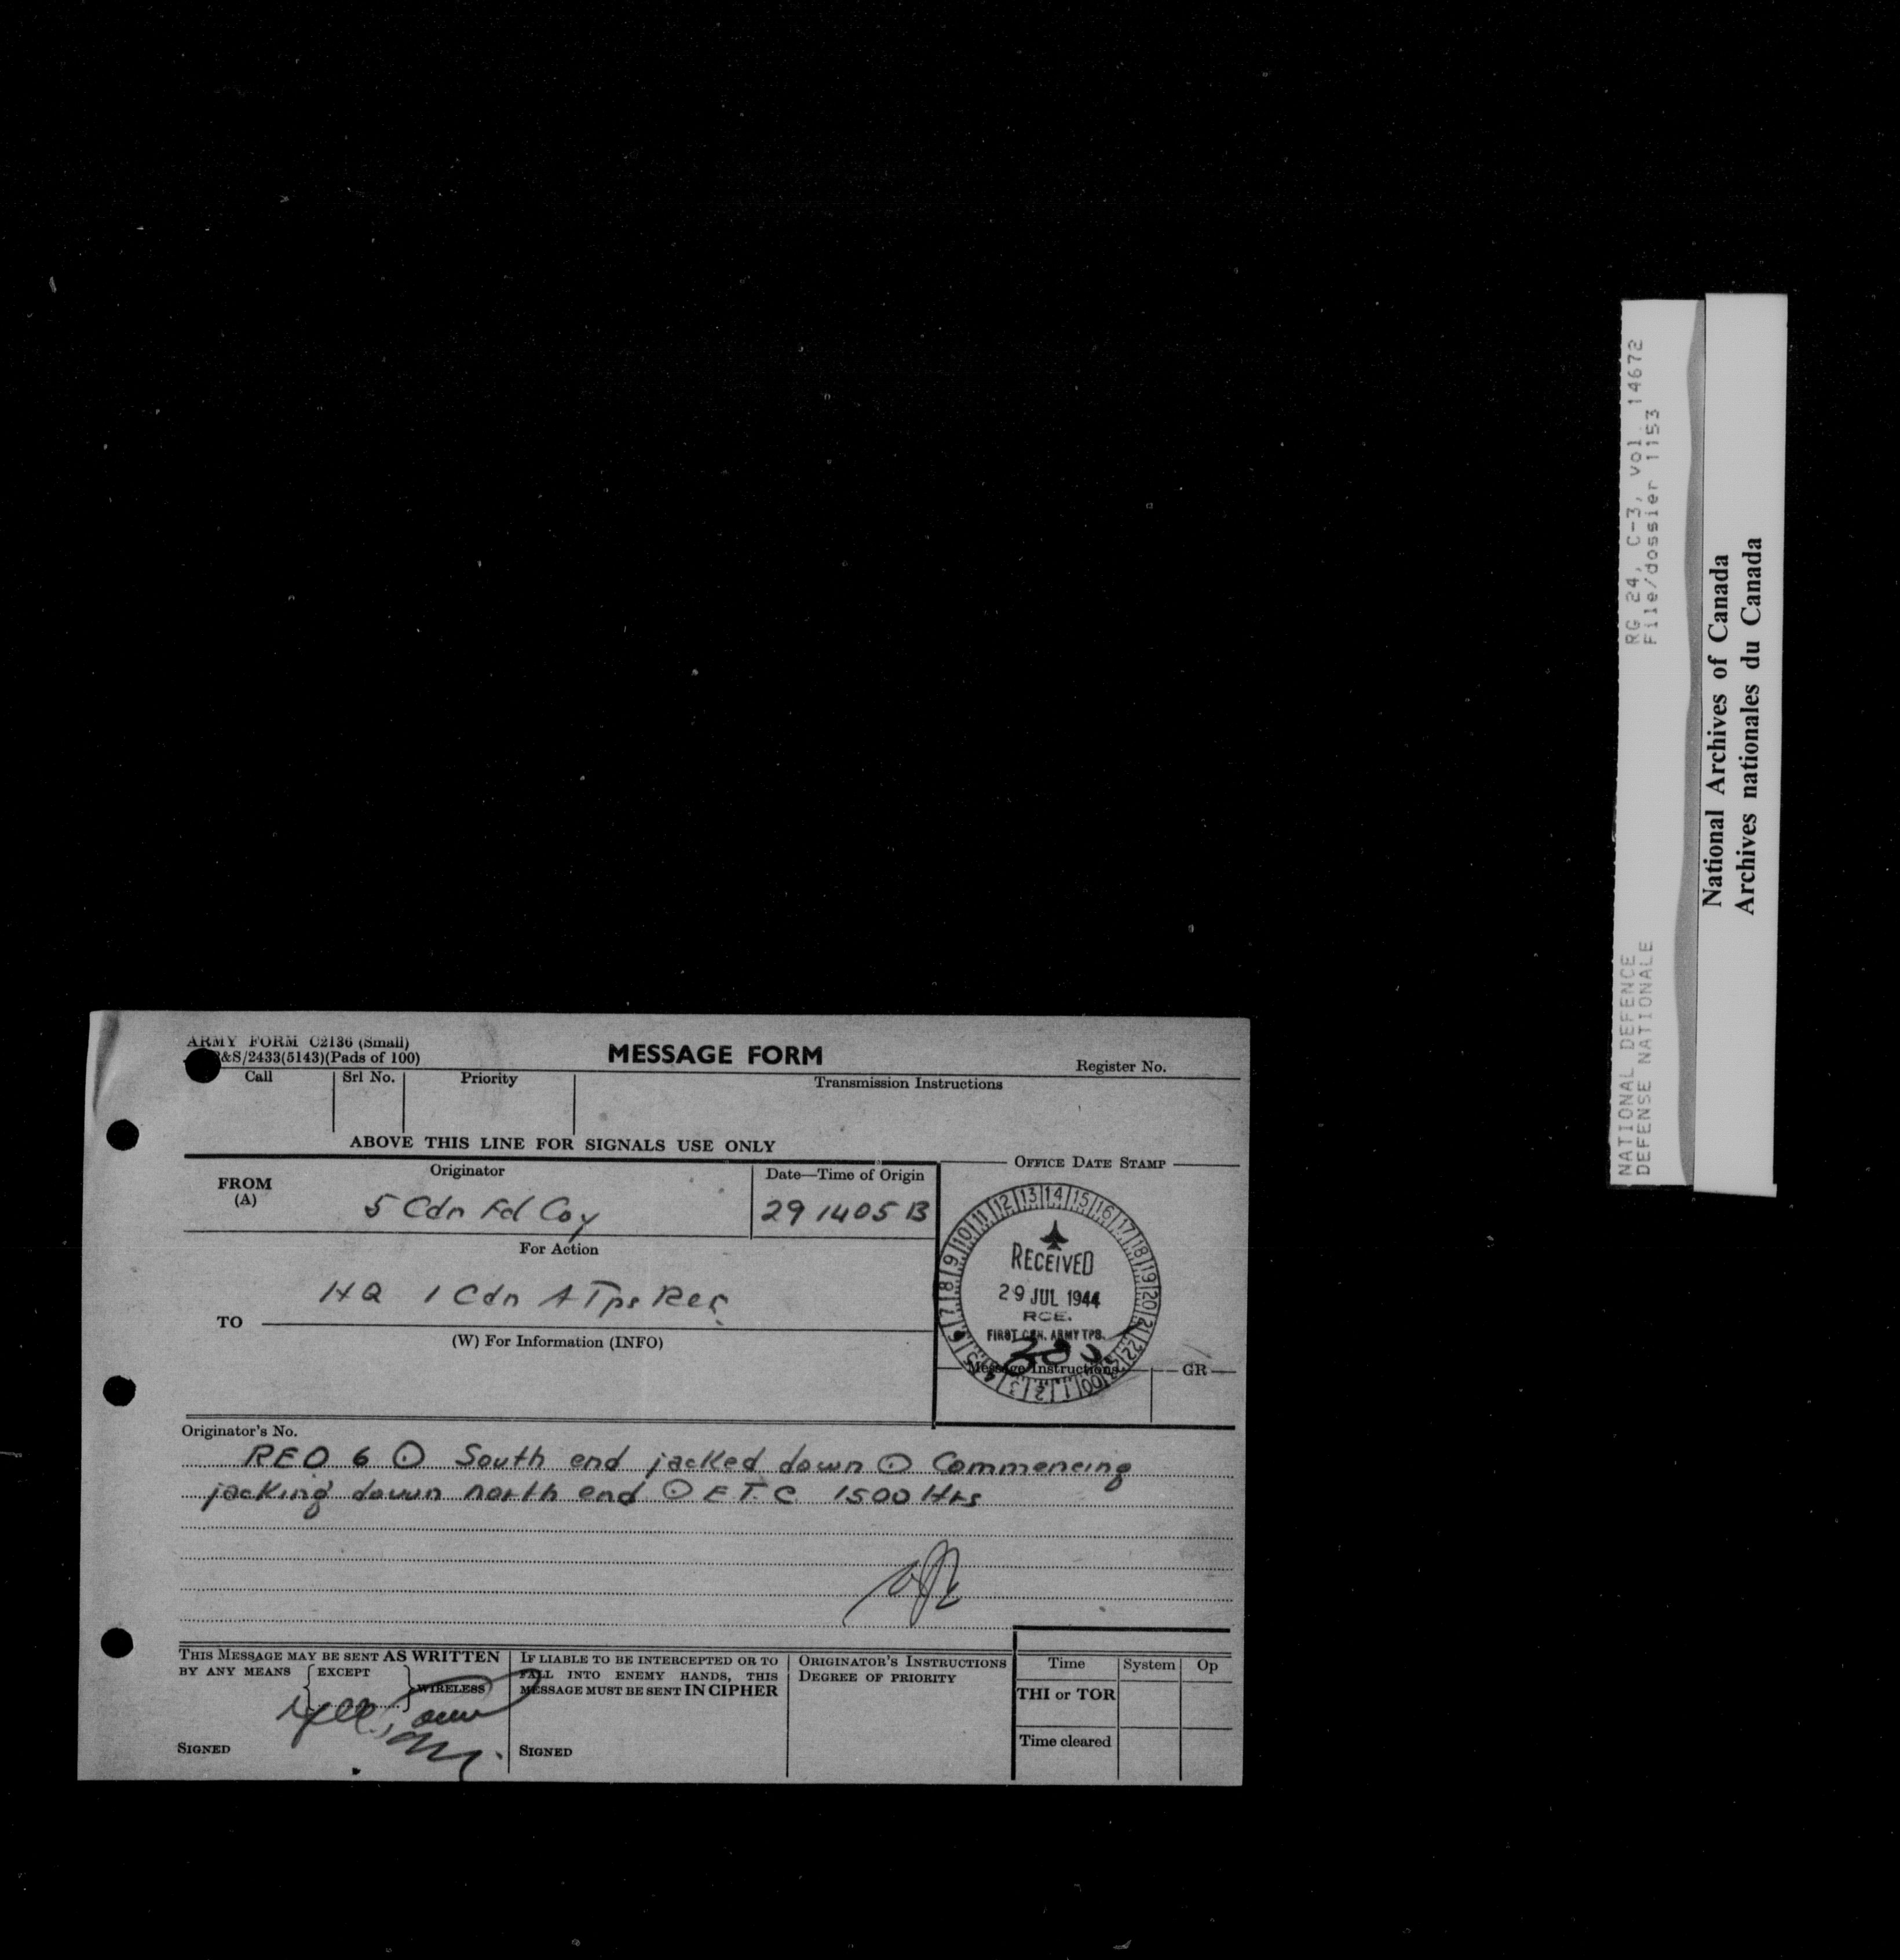 ARMY FORM C2136 (Small)
&S/2433(5143)(Pads of 100)
MESSAGE FORM
Register No.
Call Srl No. Priority Transmission Instructions
ABOVE THIS LINE FOR SIGNALS USE ONLY
FROM (A)
Originator
5 Cdn Fd Coy
Date—Time of Origin
29 1405 B
OFFICE DATE STAMP
6 7 8 9 10 11 12 13 14 15 16 17 18 19 20 21 22 23 00 1 2 3 4 5
RECEIVED
29 JUL 1944
RCE.
FIRST CDN. ARMY TPS.
For Action
TO
HQ 1 Cdn A Tps
(W) For Information (INFO)
Message Instructions GR
Originator's No.
REO 6 ⊙ South end jacked down ⊙ Commencing
jacking down north end ⊙ E T C 1500 Hrs
THIS MESSAGE MAY BE SENT AS WRITTEN
BY ANY MEANS EXCEPT WIRELESS
SIGNED
IF LIABLE TO BE INTERCEPTED OR TO
FALL INTO ENEMY HANDS, THIS
MESSAGE MUST BE SENT IN CIPHER
SIGNED
ORIGINATOR'S INSTRUCTIONS
DEGREE OF PRIORITY
Time System Op
THI or TOR
Time cleared
NATIONAL DEFENCE RG 24, C-3, vol. 14672
DEFENSE NATIONALE File/dossier 1153
National Archives of Canada
Archives nationales du Canada